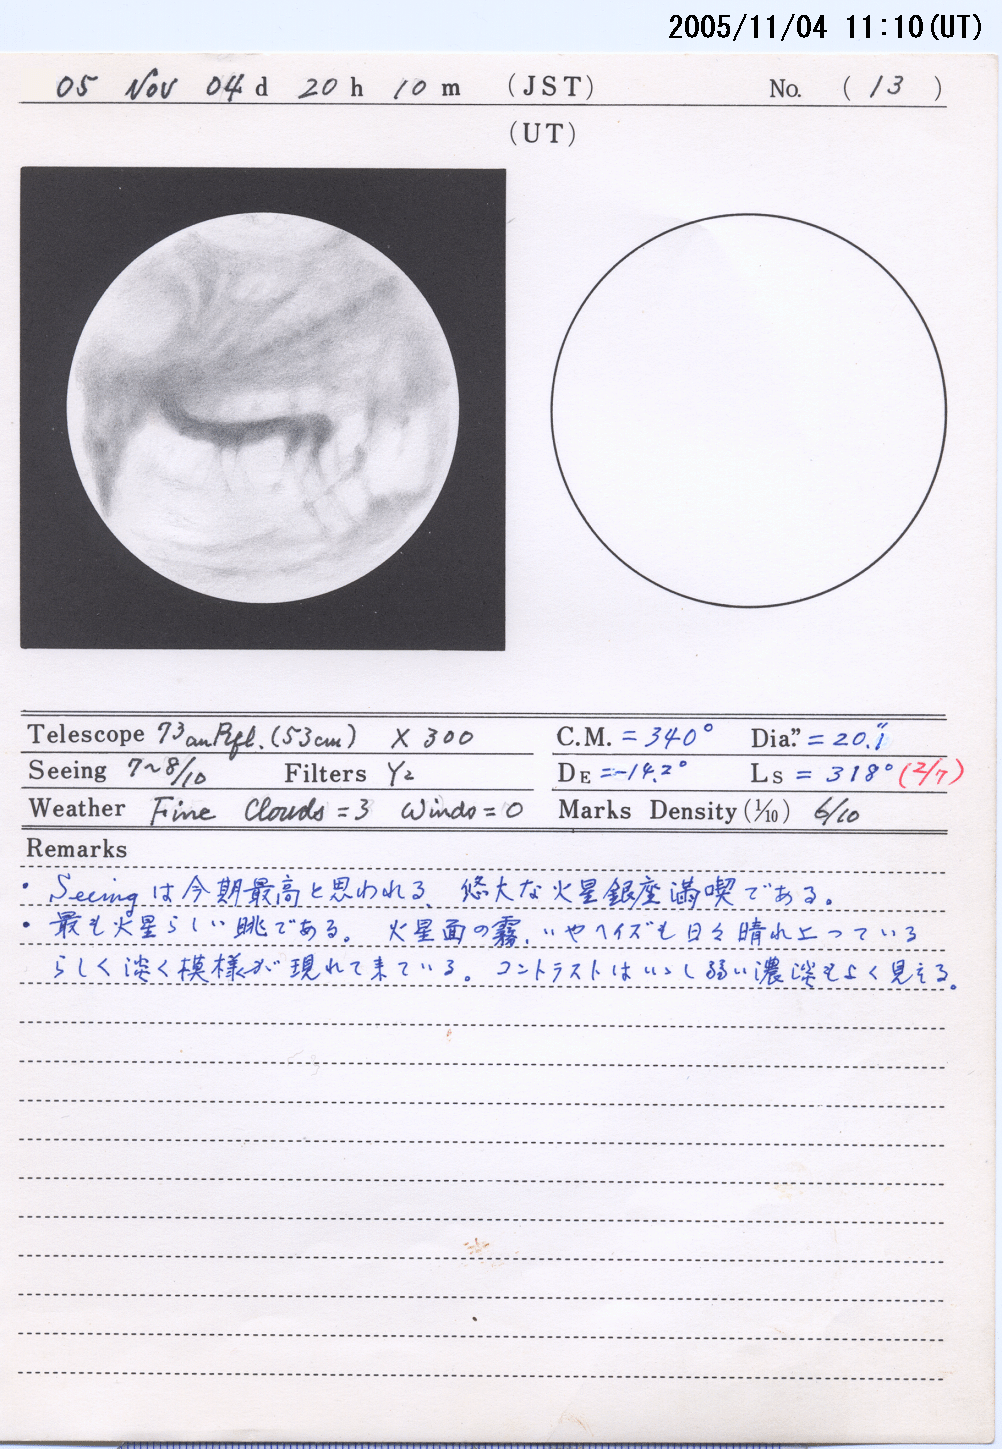 2005/11/04 11:10(UT)
05 Nov 04 d 20 h 10 m (JST) No. ( 13 )
(UT)
Telescope 73cm Rfl. (53cm) × 300 C.M. = 340° Dia." = 20."1
Seeing 7~8/10 Filters Y2 DE = -14.2° Ls = 318° (2/7)
Weather Fine Clouds = 3 Winds = 0 Marks Density (1/10) 6/10
Remarks
・Seeingは今期最高と思われる、悠大な火星銀座満喫である。
・最も火星らしい眺である。火星面の霧、いやヘイズも日々晴れ上っている
らしく淡く模様が現れて来ている。コントラストは し弱い濃淡もよく見える。